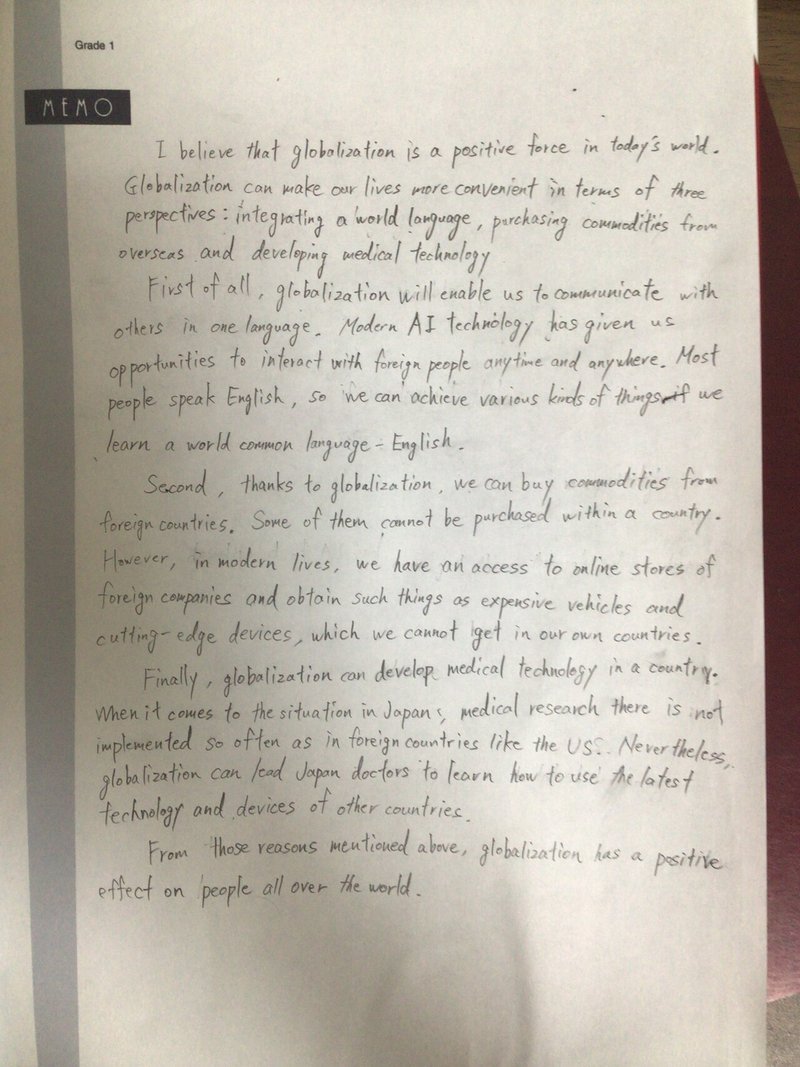 Grade 1
MEMO
I believe that globalization is a positive force in today's world.
Globalization can make our lives more convenient in terms of three
perspectives: integrating a world language, purchasing commodities from
overseas and developing medical technology
First of all, globalization will enable us to communicate with
others in one language. Modern AI technology has given us
opportunities to interact with foreign people anytime and anywhere. Most
people speak English, so we can achieve various kinds of things if we
learn a world common language - English.
Second, thanks to globalization, we can buy commodities from
foreign countries. Some of them cannot be purchased within a country.
However, in modern lives, we have an access to online stores of
foreign companies and obtain such things as expensive vehicles and
cutting-edge devices, which we cannot get in our own countries.
Finally, globalization can develop medical technology in a country.
When it comes to the situation in Japan, medical research there is not
implemented so often as in foreign countries like the US. Nevertheless,
globalization can lead Japan doctors to learn how to use the latest
technology and devices of other countries.
From those reasons mentioned above, globalization has a positive
effect on people all over the world.